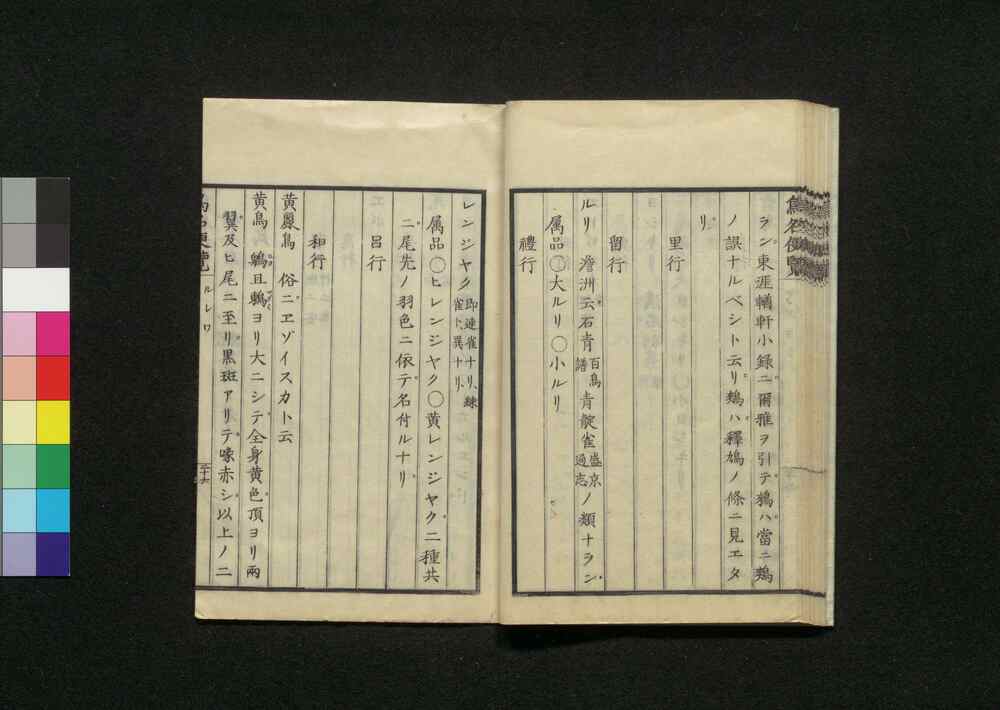 鳥名便覧
ラン東涯輶軒小録ニ爾雅ヲ引テ鴉ハ當ニ鵶
ノ誤ナルベシト云リ鵶ハ釋鳩ノ條ニ見エタ
リ
里行
留行
ルリ 澹洲云石青百鳥譜青靛雀盛京通志ノ類ナラン
属品〇大ルリ〇小ルリ
禮行
レンジヤク即連雀ナリ、練雀ト、異ナリ、
属品〇ヒレンジヤク〇黄レンジヤク二種共
ニ尾先ノ羽色ニ依テ名付ルナリ
呂行
和行
黄鳳鳥 俗ニヱゾイスカト云
黄鳥 鵯且鵙ヨリ大ニシテ全身黄色頂ヨリ兩
翼及ヒ尾ニ至リ黒斑アリテ喙赤シ以上ノ二
ルレワ
二十六